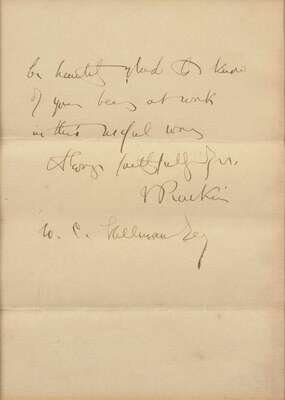 be heartily glad to know
of your being at work
in this useful way
Always faithfully yrs.
J Ruskin
W. C. Esq